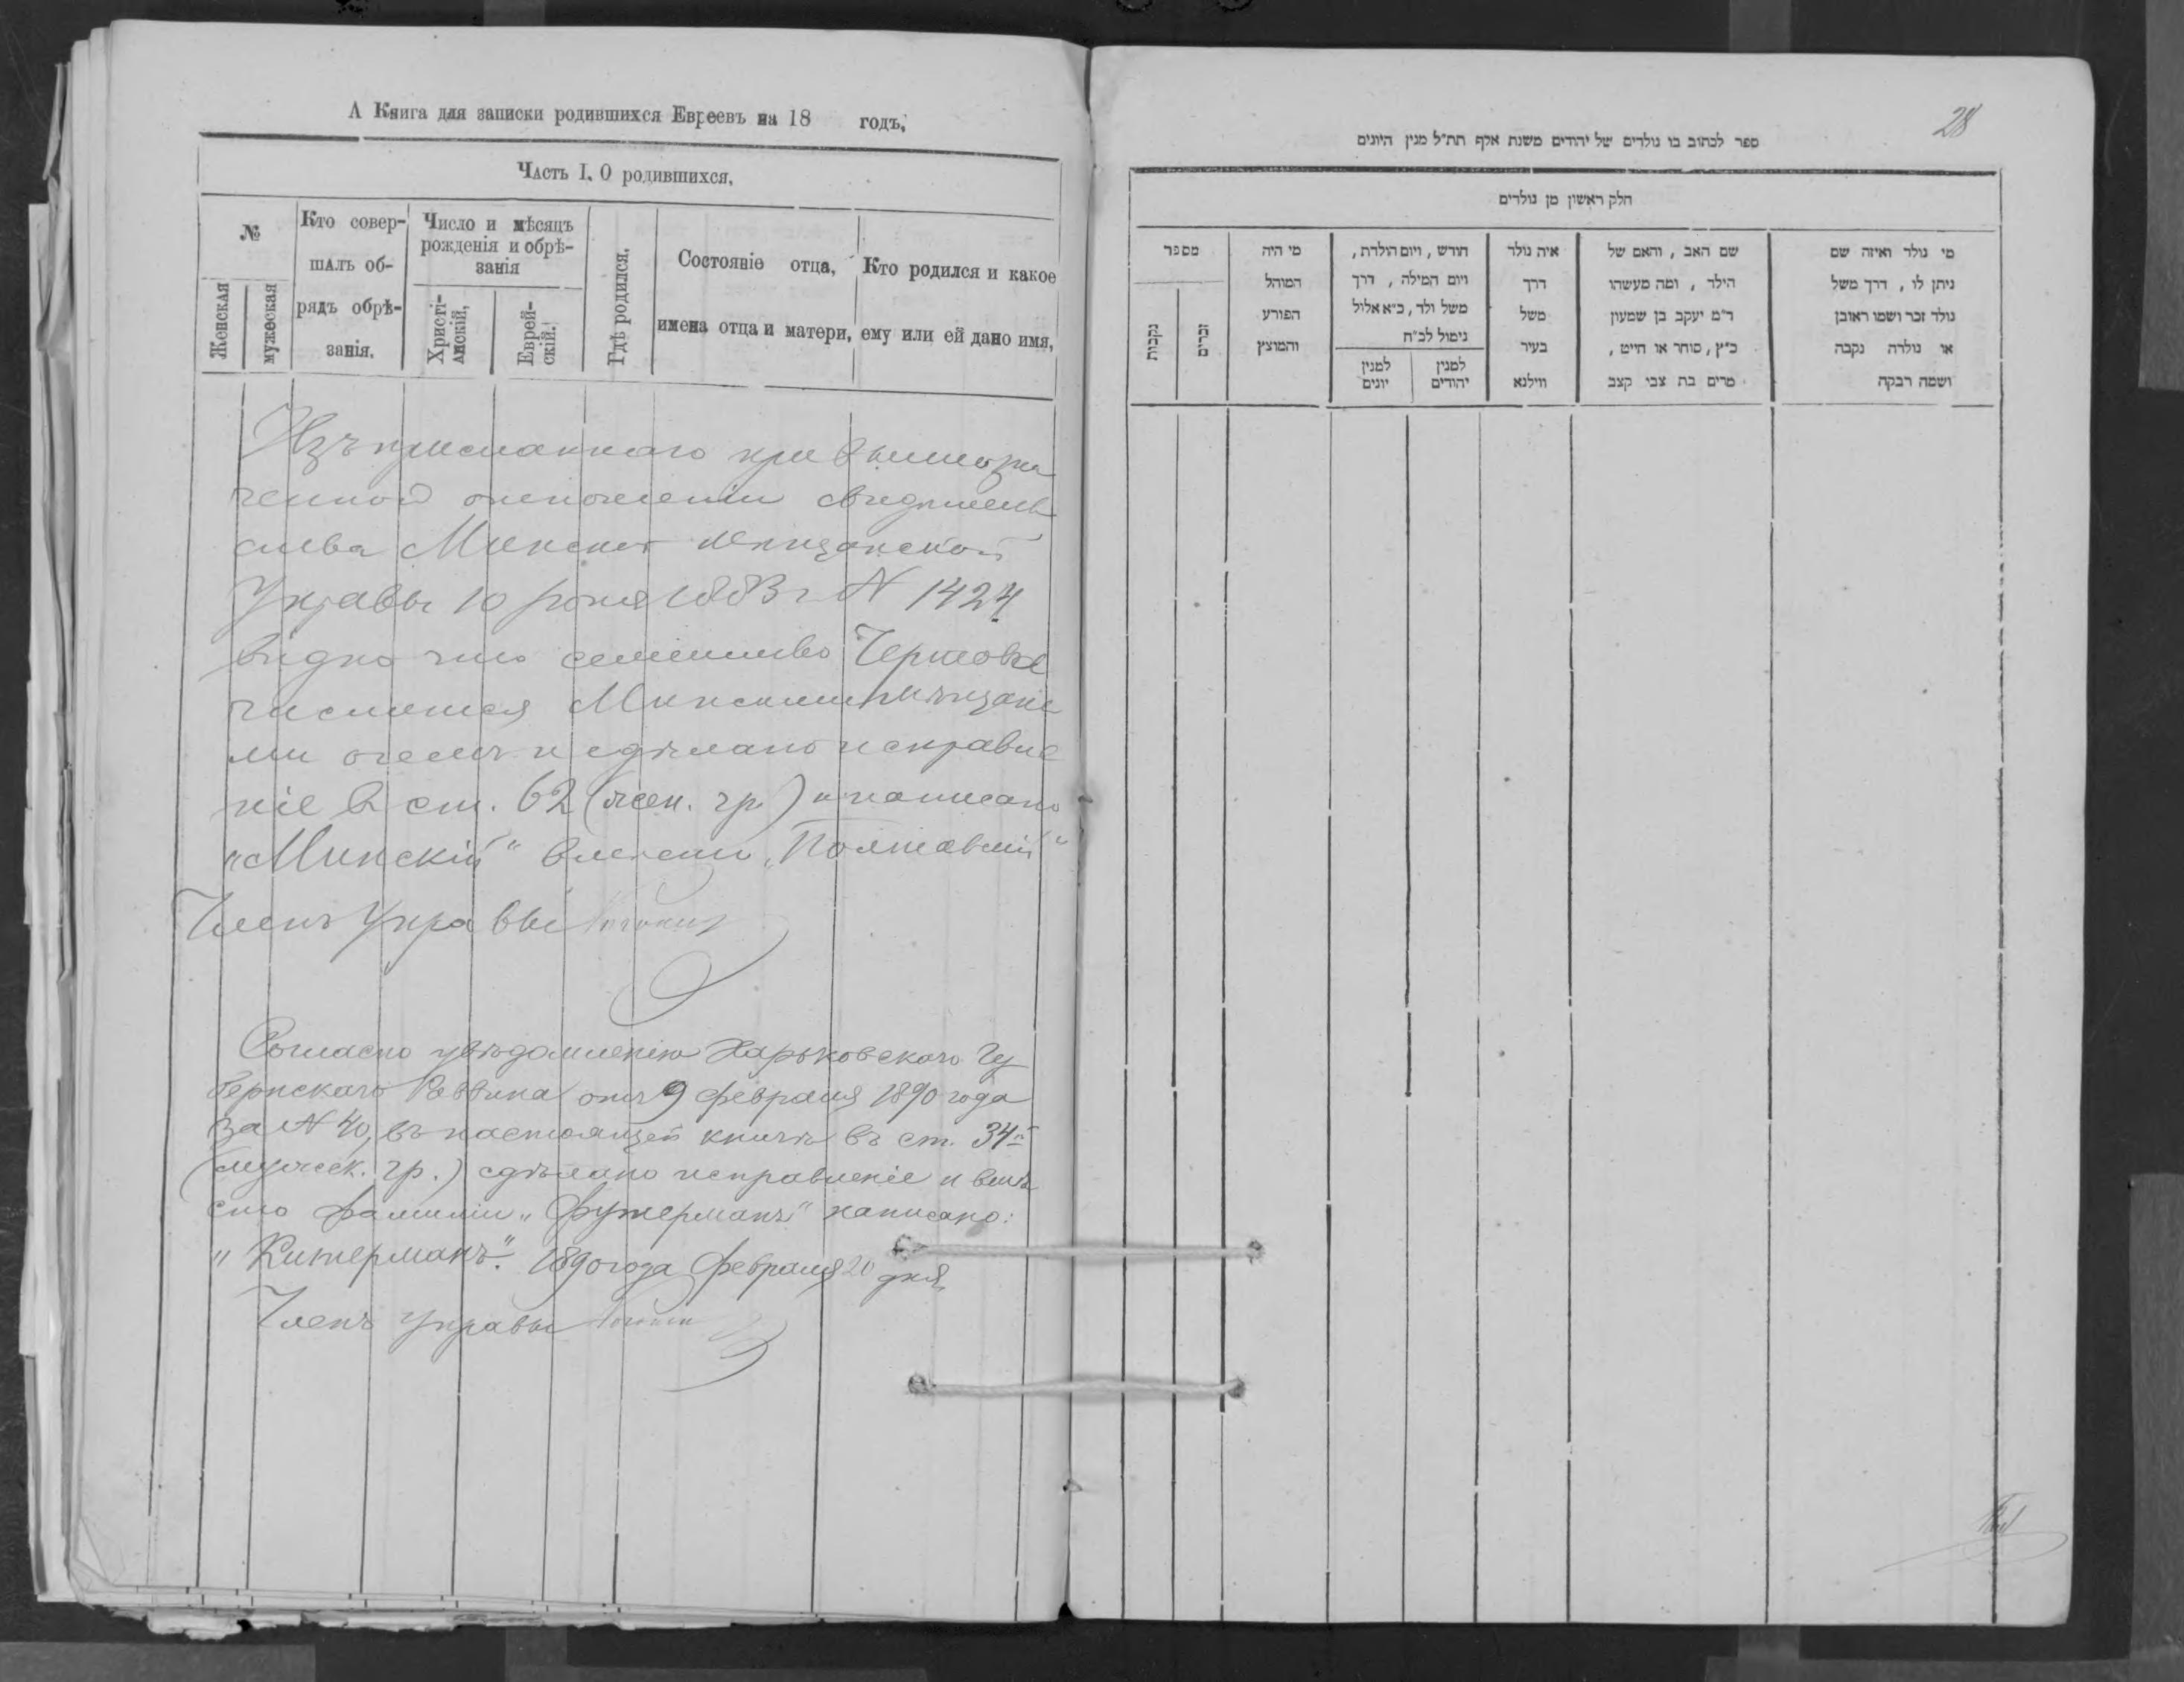 А Книга для записки родившихся Евреевъ на 18 годъ,
Часть I. О родившихся.
№
Женская
мужеская
Кто совер-
шалъ об-
рядъ обрѣ-
занія.
Число и мѣсяцъ
рожденія и обрѣ-
занія
Христі-
анскій,
Еврей-
скій.
Гдѣ родился.
Состояніе отца,
имена отца и матери,
Кто родился и какое
ему или ей дано имя,
Изъ присланнаго при вышеозна
ченной отношеніи свидѣтель
ства Минской мѣщанской
Управы 10 1883 г N 1424
видно что семейство
числится Минскими мѣщана
ми о чемъ и сдѣлано исправле
ніе в ст. 62 (жен. гр.) и написано
"Минскій" вмѣсто „Полтавскій"
Членъ Управы
Согласно увѣдомленію Харьковскаго Гу
бернскаго Раввина отъ 9 февраля 1890 года
за N 40, въ настоящей книгѣ въ ст. 34й
(мужеск. гр.) сдѣлано исправленіе и вмѣ
сто фамиліи „Футерманъ" написано:
„Китерманъ". 1890 года февраля 20 дня
Членъ Управы
28
ספר לכתוב בו נולדים של יהודים משנת אלף תת״ל מנין היונים
חלק ראשון מן נולדים
מספר
נקבות
זכרים
מי היה
המוהל
הפורע
והמוצץ
חודש, ויום הולדת,
ויום המילה, דרך
משל ולד, כ״א אלול
נימול לכ״ח
למנין
יונים
למנין
יהודים
איה נולד
דרך
משל
בעיר
ווילנא
שם האב, והאם של
הילד, ומה מעשהו
ר״מ יעקב בן שמעון
כ״ץ, סוחר או חייט,
מרים בת צבי קצב
מי נולד ואיזה שם
ניתן לו, דרך משל
נולד זכר ושמו ראובן
או נולדה נקבה
ושמה רבקה